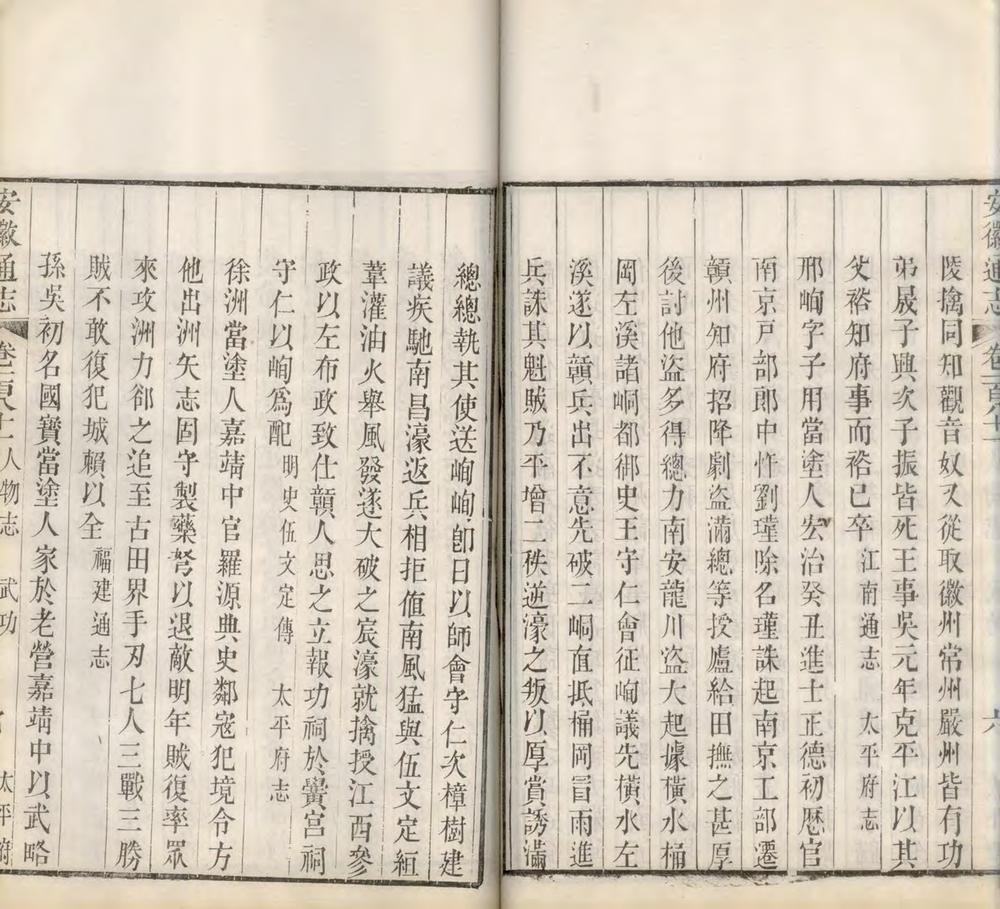 安徽通志
陵擒同知觀音奴又從取徽州常州嚴州皆有功
弟晟子興次子振皆死王事吳元年克平江以其
父裕知府事而裕已卒 江南通志 太平府志
邢珣字子用當塗人宏治癸丑進士正德初歷官
南京戸部郎中忤劉瑾除名瑾誅起南京工部遷
贛州知府招降劇盜滿總等授廬給田撫之甚厚
後討他盜多得總力南安龍川盜大起據橫水桶
岡左溪諸峒都御史王守仁會征珣議先橫水左
溪遂以贛兵出不意先破二峒直抵桶岡冒雨進
兵誅其魁賊乃平增二秩逆濠之叛以厚賞誘滿
總總執其使送珣珣卽日以師會守仁次樟樹建
議疾馳南昌濠返兵相拒値南風猛與伍文定絙
葦灌油火舉風發遂大破之宸濠就擒授江西參
政以左布政致仕贛人思之立報功祠於黌宮祠
守仁以珣爲配 明史伍文定傳 太平府志
徐洲當塗人嘉靖中官羅源典史鄰寇犯境令方
他出洲矢志固守製藥弩以退敵明年賊復率眾
來攻洲力郤之追至古田界手刃七人三戰三勝
賊不敢復犯城賴以全 福建通志
孫吳初名國寶當塗人家於老營嘉靖中以武略
安徽通志 人物志 武功